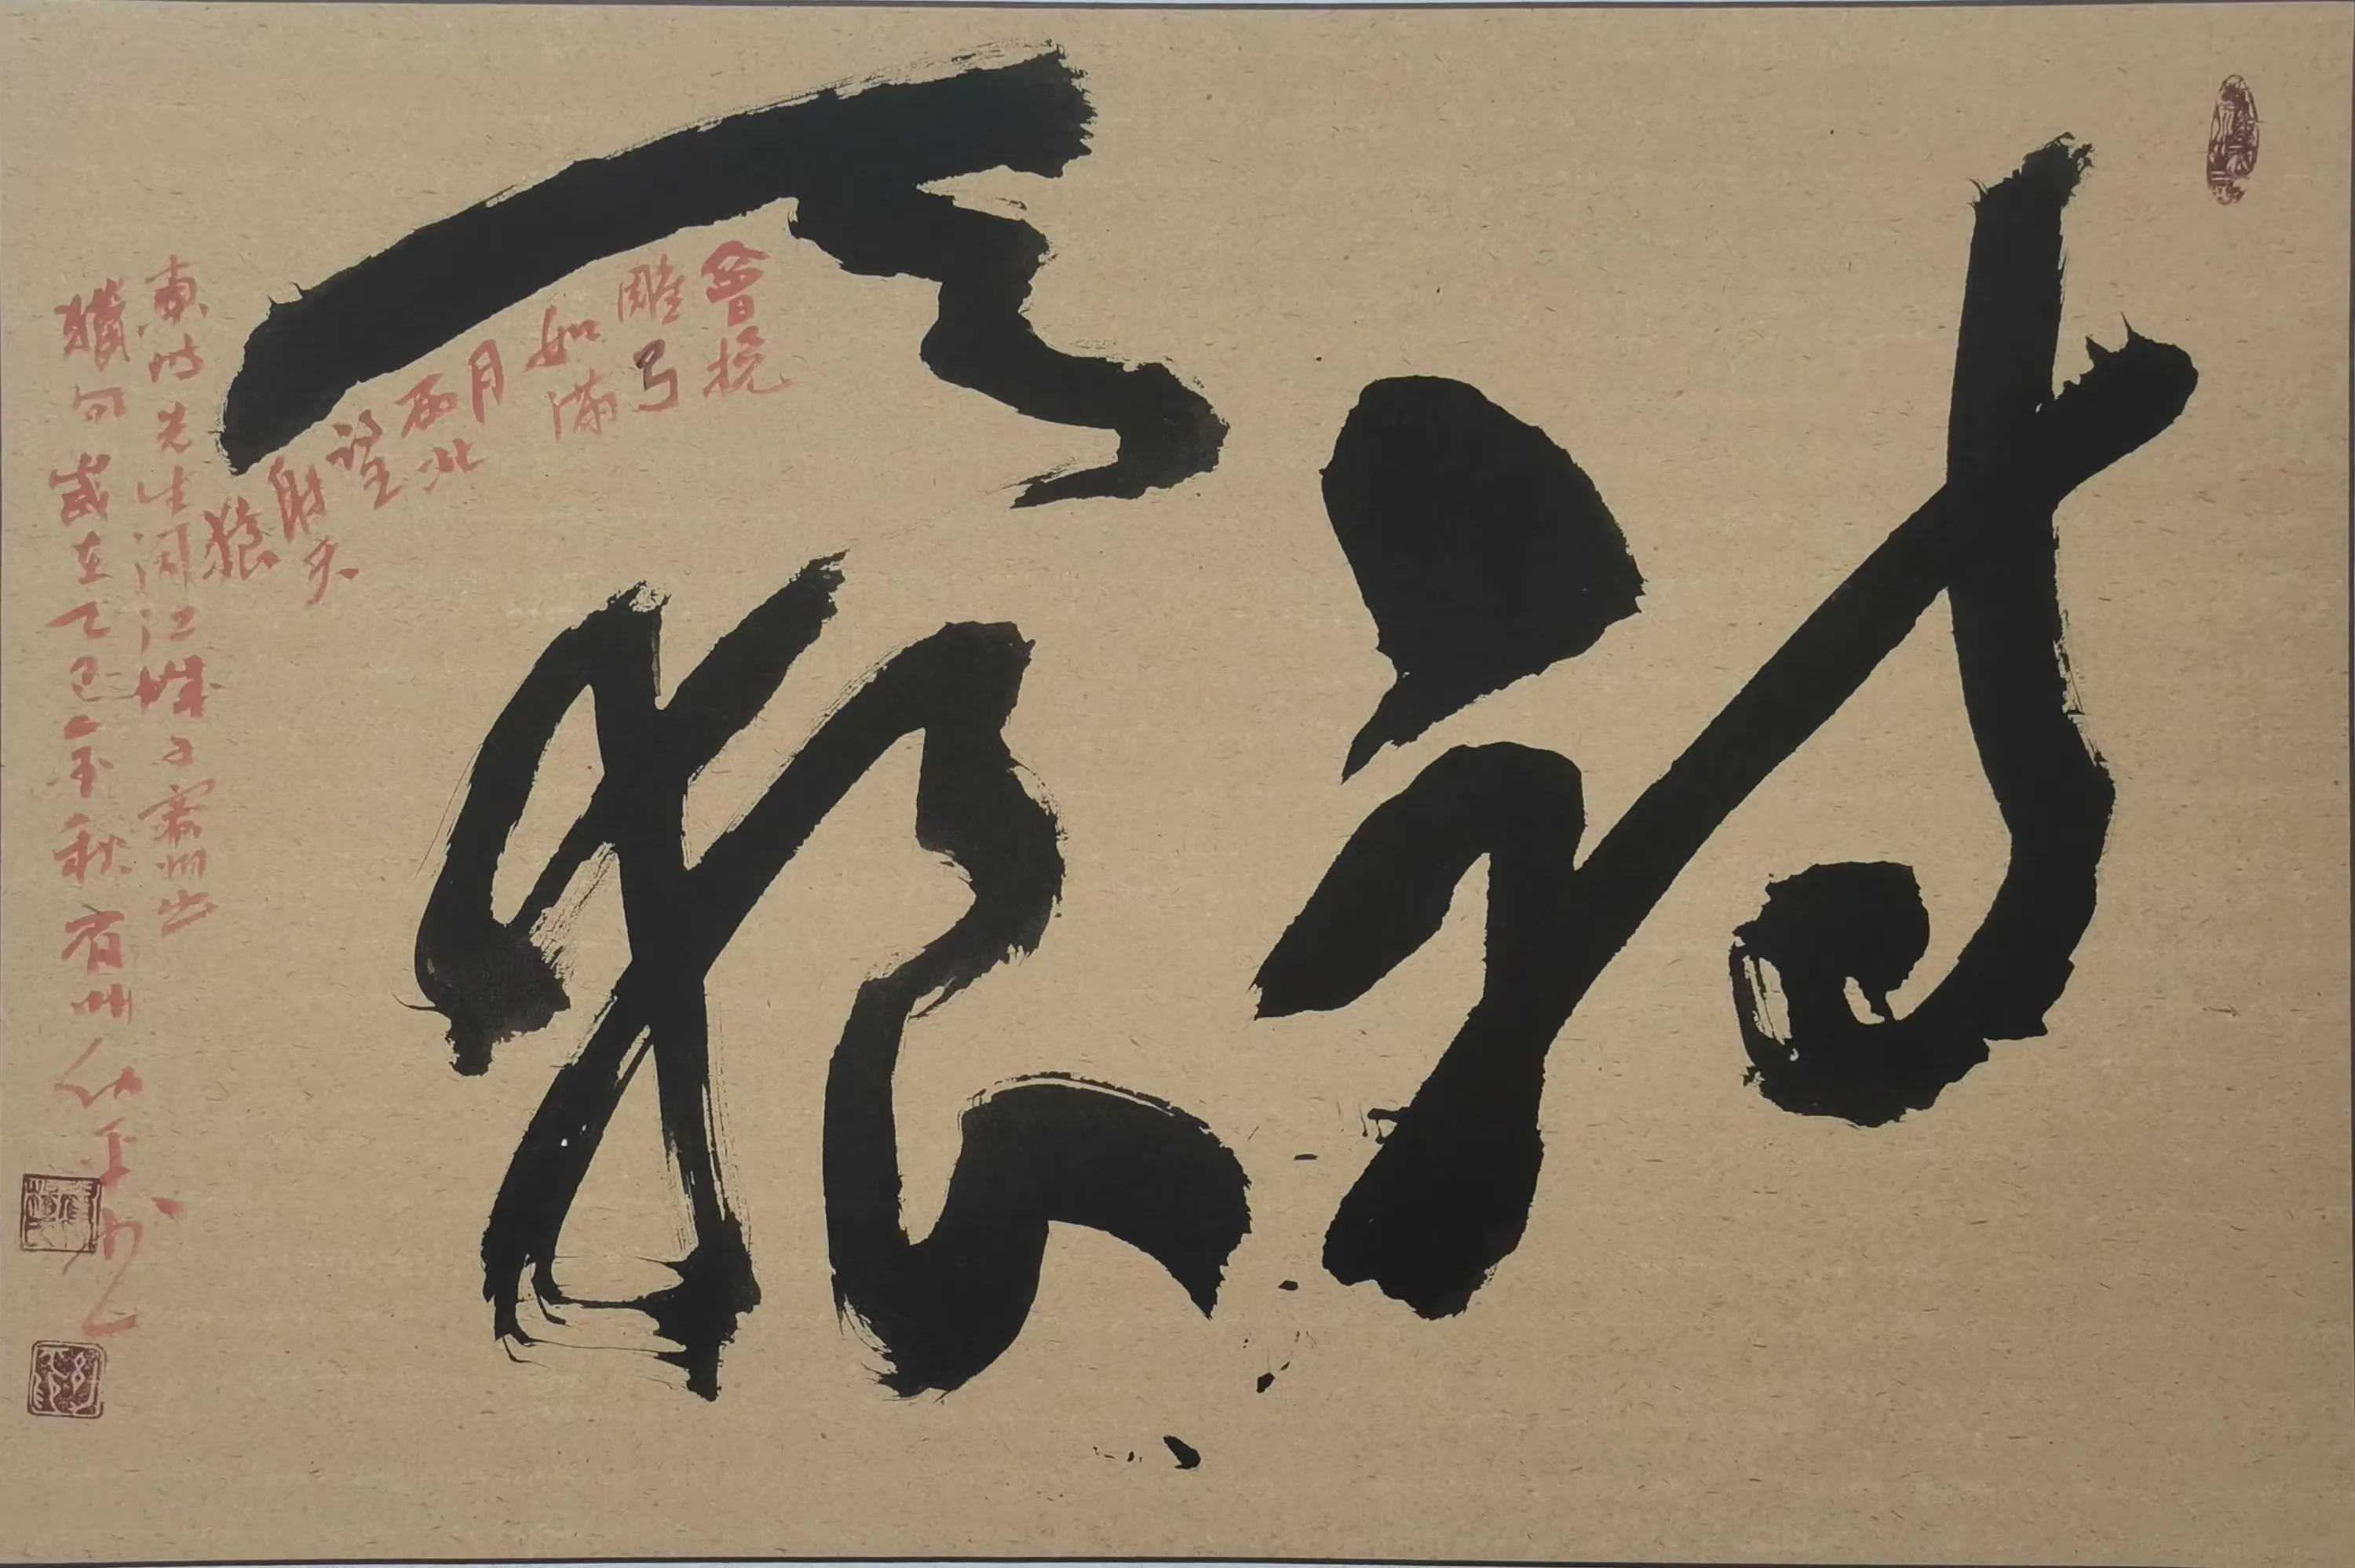 射天狼
會挽
雕弓
如滿
月
西北
望
射天
狼
東坡先生江城子密州出
獵句歲在乙巳金秋青州